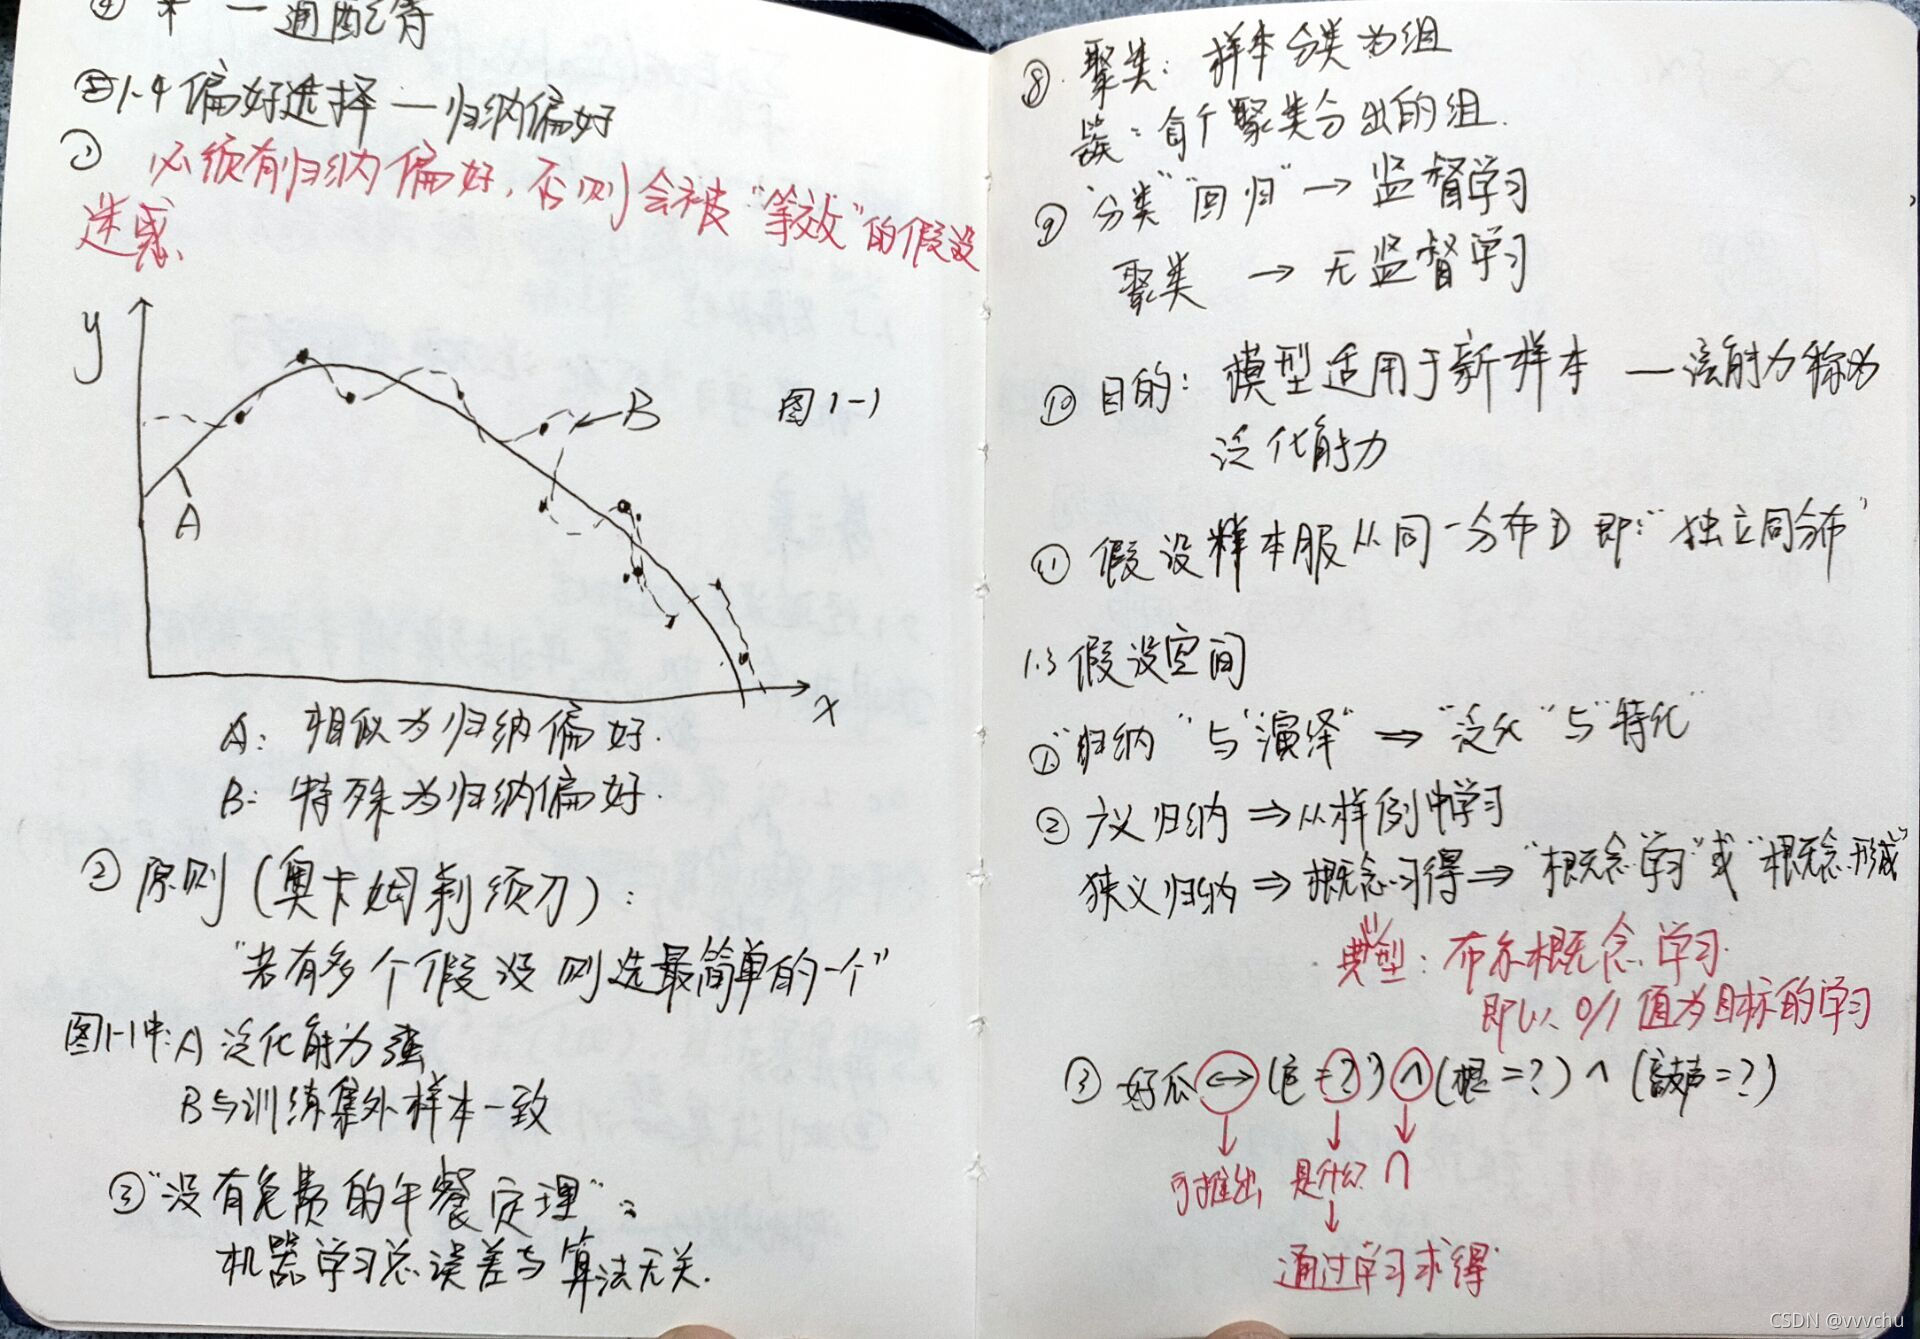 ④ * — 通配符
1.4 偏好选择 — 归纳偏好
① 必须有归纳偏好,否则会被“等效”的假设
迷惑
y
图1-1
B
A
x
A: 相似为归纳偏好.
B: 特殊为归纳偏好.
② 原则(奥卡姆剃须刀):
“若有多个假设则选最简单的一个”
图1-1中:A 泛化能力强
B与训练集外样本一致
③“没有免费的午餐定理”:
机器学习总误差与算法无关.
⑧ 聚类: 样本分类为组
簇: 每个聚类分出的组.
⑨ “分类”“回归” → 监督学习
聚类 → 无监督学习
⑩ 目的: 模型适用于新样本 — 该能力称为
泛化能力
⑪ 假设样本服从同一分布D 即:“独立同分布”
1.3 假设空间
①“归纳”与“演绎” ⇒ “泛化”与“特化”
② 广义归纳 ⇒ 从样例中学习
狭义归纳 ⇒ 概念习得 ⇒ “概念学习”或“概念形成”
典型: 布尔概念学习.
即以 0/1 值为目标的学习
③ 好瓜 ↔ (色=?) ∧ (根=?) ∧ (敲声=?)
可推出 是什么? ∩
通过学习求得
CSDN @vvvchu